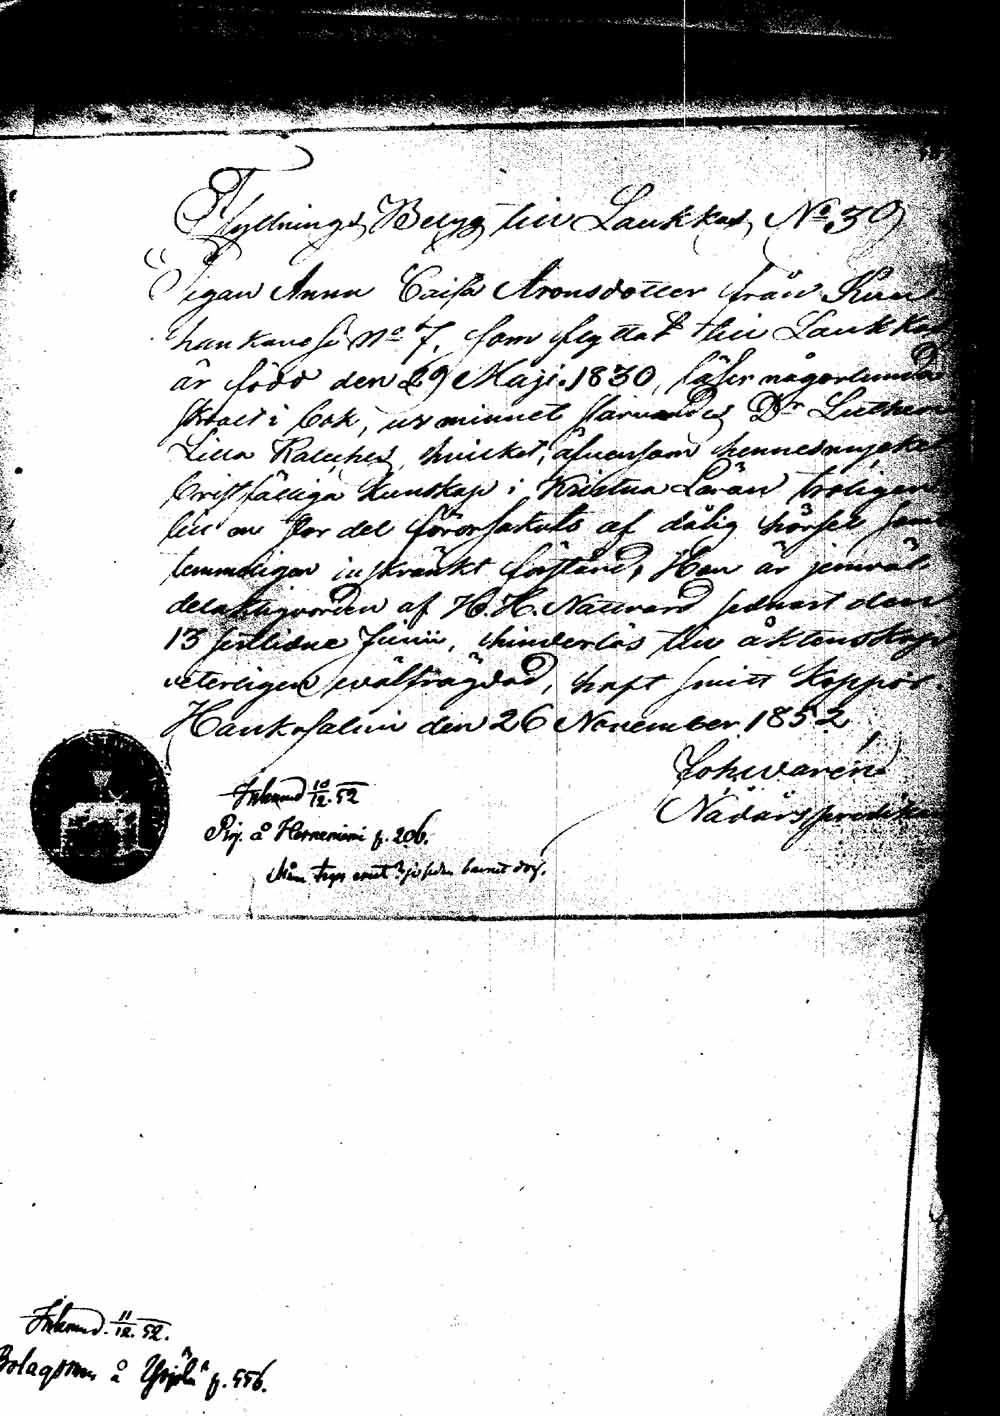 Flyttnings Betyg till Laukkas, No 39
Pigan Anna Caisa Aronsdotter från
No 7, som flyttat till Laukkas
är född den 29 Maji 1830, läser någorlunda
i bok, ur minnet Dr Luthers
Lilla Kateches, hvilket, äfvensom hennes mycket
bristfälliga kunskap i Kristna Läran troligen
till en stor del förorsakats af dålig hörsel samt
temmeligen inskränkt förstånd, Hon är jemväl
delaktigvorden af H. H. Nattvard sednast den
13 sistlidne Junii, hinderlös till äktenskap
veterligen, välfrägdad, haft koppor.
Hankasalmi den 26 November 1852
Joh.
Nådårspredik
Inkomd 10/12. 52
å f. 206.
barnet
Inkomd. 11/12. 52.
å f. 556.